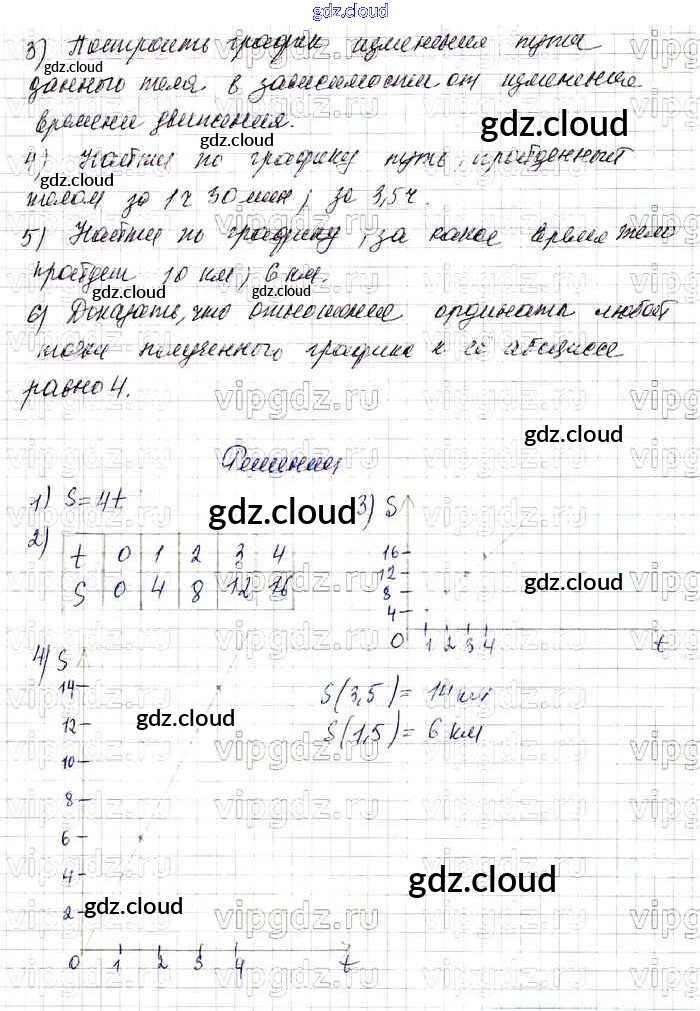 gdz.cloud
3) Построить график изменения пути
данного тела в зависимости от изменения
времени движения.
4) Найти по графику путь, пройденный
телом за 1ч 30 мин; за 3,5ч.
5) Найти по графику, за какое время тело
пройдет 10 км; 6 км.
6) Доказать, что отношение ординаты любой
точки полученного графика к её абсциссе
равно 4.
Решение
1) S=4t
2)
t 0 1 2 3 4
S 0 4 8 12 16
3) S
16
12
8
4
0 1 2 3 4 t
4) S
14
12
10
8
6
4
2
0 1 2 3 4 t
S(3,5) = 14 км
S(1,5) = 6 км
gdz.cloud
vipgdz.ru